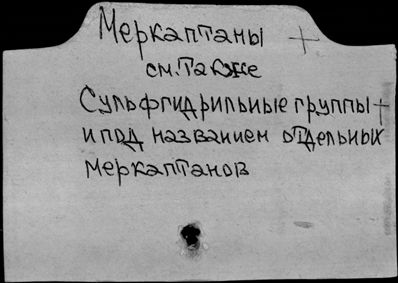 Меркаптаны +
см. также
Сульфгидрильные группы +
и под названием отдельных
меркаптанов